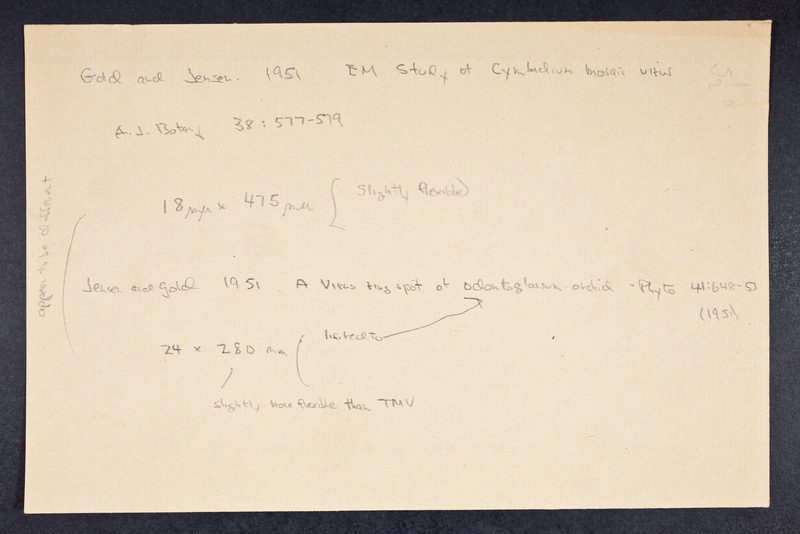 Gold and Jensen. 1951 EM Study of Cymbidium mosaic virus
A. J. Botany 38: 577-579
18 mμ x 475 mμ (Slightly flexible)
appear to be different
Jensen and Gold 1951. A Virus ring spot of odontoglossum orchid - Phyto 41:648-53
(1951)
limited to
24 x 280 mμ
slightly more flexible than TMV